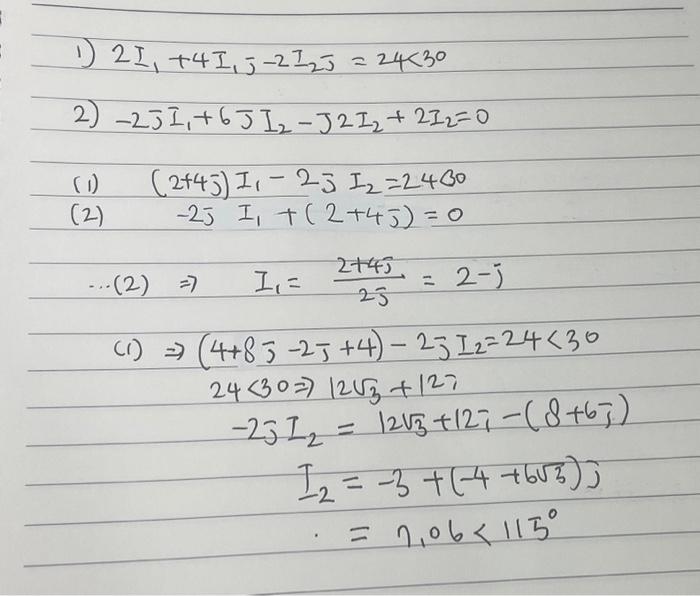 1) 2I₁ + 4I₁j - 2I₂j = 24<30
2) -2jI₁ + 6jI₂ - J2I₂ + 2I₂ = 0
(1) (2+4j) I₁ - 2j I₂ = 24<30
(2) -2j I₁ + (2+4j) = 0
...(2) ⇒ I₁ = (2+4j)/2j = 2-j
(1) ⇒ (4+8j -2j +4) - 2j I₂ = 24<30
24<30 ⇒ 12√3 + 12j
-2j I₂ = 12√3 + 12j - (8+6j)
I₂ = -3 + (-4 + 6√3)j
= 7,06 < 115°